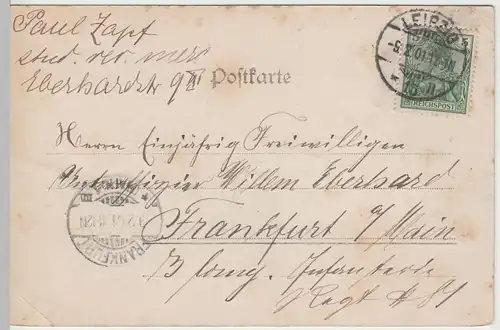 Paul Zapf
stud. rer. merc
Eberhardstr 9 II
Postkarte
LEIPZIG
REICHSPOST
Herrn Einjährig Freiwilligen
Unteroffizier Willem Eberhard
Frankfurt a/Main
3 Comp. Infanterie
Regt # 81
FRANKFURT